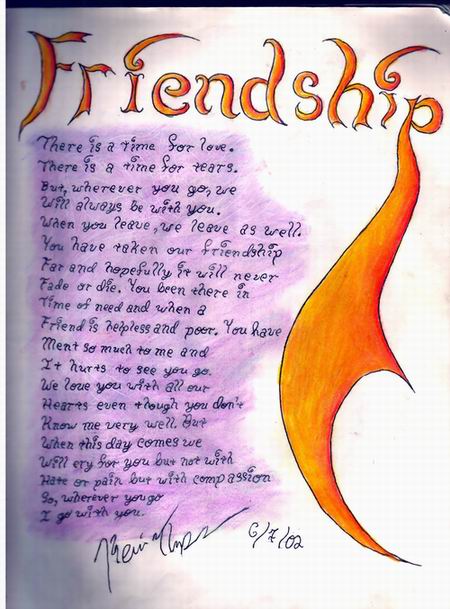 Friendship
There is a time for love.
There is a time for tears.
But, wherever you go, we
Will always be with you.
When you leave, we leave as well.
You have taken our friendship
Far and hopefully it will never
Fade or die. You been there in
Time of need and when a
Friend is helpless and poor. You have
Ment so much to me and
It hurts to see you go.
We love you with all our
Hearts even though you don't
Know me very well. But
When this day comes we
Will cry for you but not with
Hate or pain but with compassion
So, wherever you go
I go with you.
6/7/02